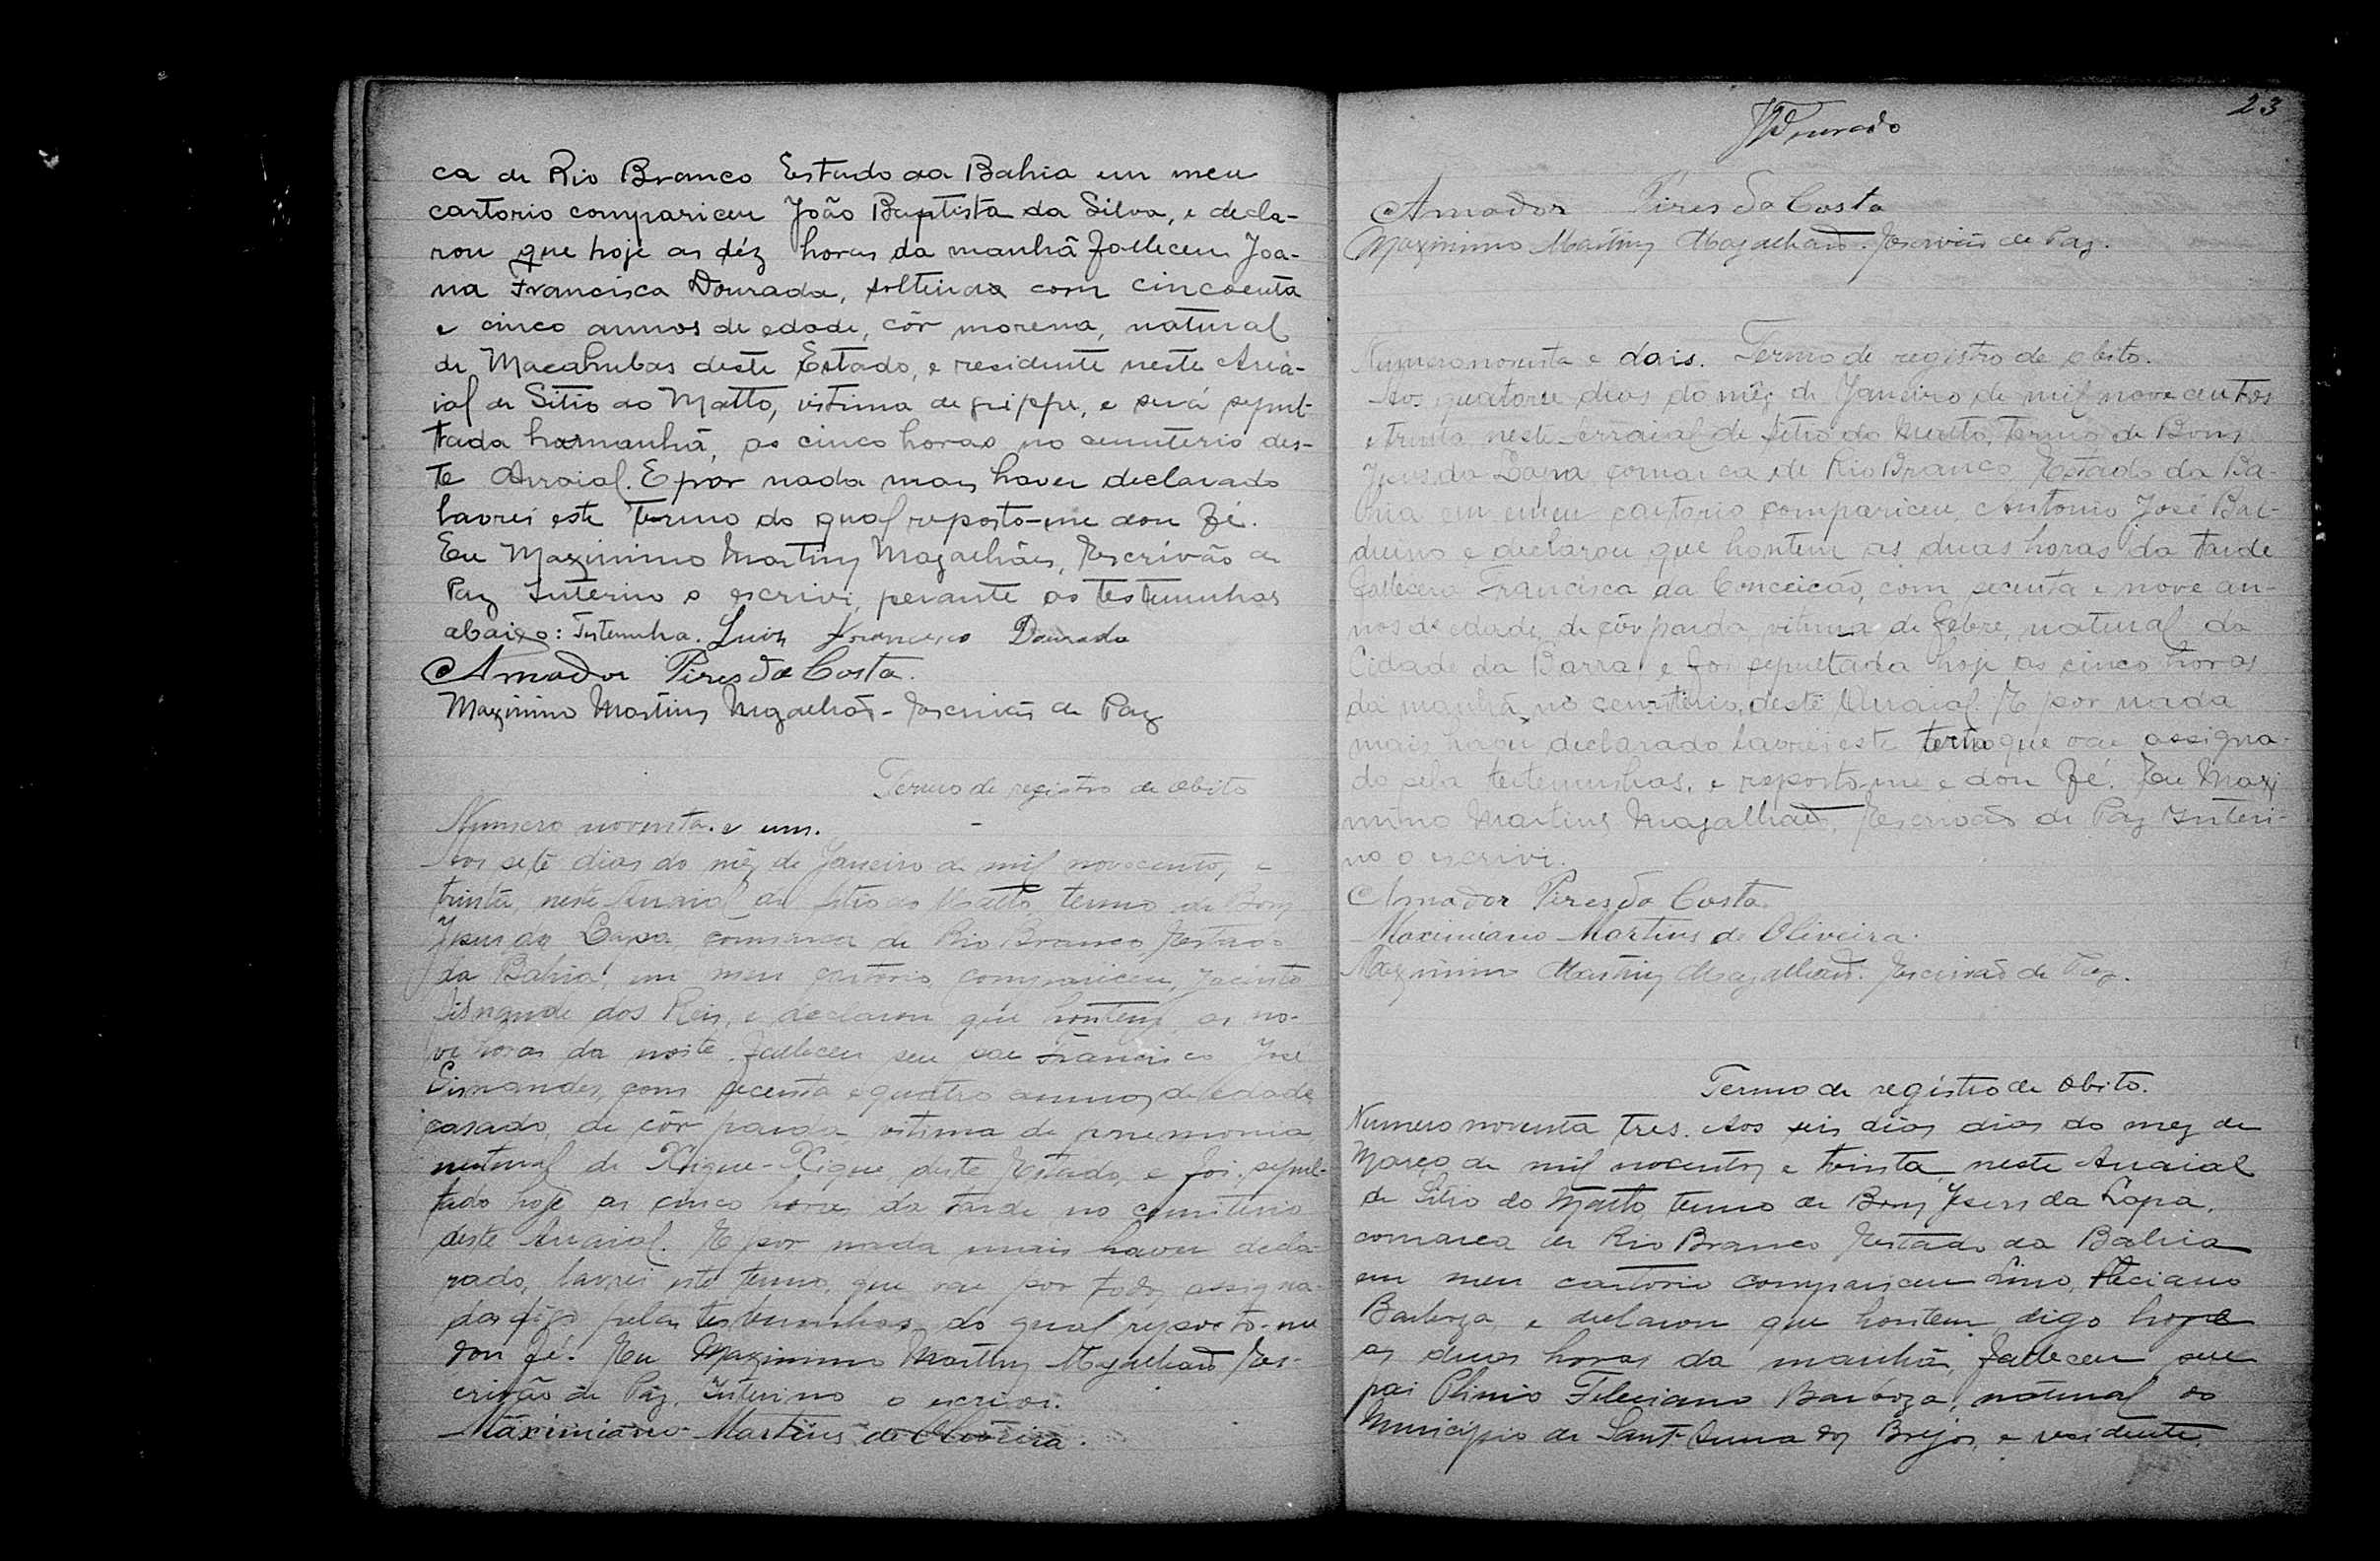 ca de Rio Branco Estado da Bahia em meu
cartorio compariceu João Baptista da Silva, e decla-
rou que hoje as déz horas da manhã falleceu Joa-
na Francisca Dourada, solteira com cincoenta
e cinco annos de edade, côr morena, natural
de Macahubas deste Estado, e residente neste Arra-
ial de Sitio do Matto, vistima de grippe, e será sepul-
tada hamanhã, as cinco horas no cemiterio des-
te Arraial. E por nada mais haver declarado
lavrei este Termo do qual reporto-me dou fé.
Eu Maximino Martins Magalhães, Escrivão de
Paz Interino o escrivi, perante as testemunhas
abaixo: Testemunha. Luiz Francisco Dourado
Amador Pires da Costa.
Maximino Martins Magalhães - Escrivão de Paz
Termo de registro de obito
Numero noventa e um.
Aos sete dias do mêz de Janeiro de mil novocentos, e
trinta, neste Arraial de Sitio do Matto, termo de Bom
Jesus da Lapa, comarca de Rio Branco, Estado
da Bahia, em meu cartorio compariceu, Jacinto
Sisnande dos Reis, e declarou que hontem, as no-
ve horas da noite falleceu seu pae Francisco José
Sisnandes, com secenta e quatro annos de edade
casado, de côr parda, vitima de pnemonia
natural de Xique-Xique, deste Estado, e foi sepul-
tado hoje as cinco horas da tarde no cemiterio
deste Arraial. E por nada mais haver decla-
rado, lavrei este termo, que vae por todos assigna-
dos digo pelas testemunhas, do qual reporto-me
dou fé. Eu Maximino Martins Magalhães Es-
crivão de Paz, Interino o escrivi.
Maximiano Martins de Oliveira.
23
Dourado
Amador Pires da Costa
Maximino Martins Magalhães. Escrivão de Paz.
Numero noventa e dois. Termo de registro de obito.
Aos quatorse dias do mêz de Janeiro de mil novecentos
e trinta, neste Arraial de Sitio do Matto, termo de Bom
Jesus da Lapa comarca de Rio Branco Estado da Ba-
hia em meu cartorio compariceu, Antonio José Bal-
duino e declarou que hontem as duas horas da tarde
fallecera Francisca da Conceicão, com secenta e nove an-
nos de edade, de côr parda, vitima de febre, natural da
Cidade da Barra, e foi sepultada hoje as cinco horas
da manhã, no cemiterio, deste Arraial. E por nada
mais haver declarado lavrei este termo que vae assigna-
do pela testemunhas, e reporto-me e dou fé. Eu Maxi
mino Martins Magalhães, Escrivão de Paz Interi-
no o escrivi.
Amador Pires da Costa.
Maximiano Martins de Oliveira.
Maximino Martins Magalhães. Escrivão de Paz.
Termo de registro de Obito.
Numero noventa tres. Aos seis dias dias do mez de
Março de mil nocentos e trinta, neste Arraial
de Sitio do Matto, termo de Bom Jesus da Lapa,
comarca de Rio Branco Estado da Bahia
em meu cartorio compariceu Lino, Feliciano
Barboza, e declarou que hontem digo hoje
as duas horas da manhã, falleceu seu
pai Plinio Feleciano Barboza, natural do
Municipio de Sant-Anna dos Brejos, e residente,